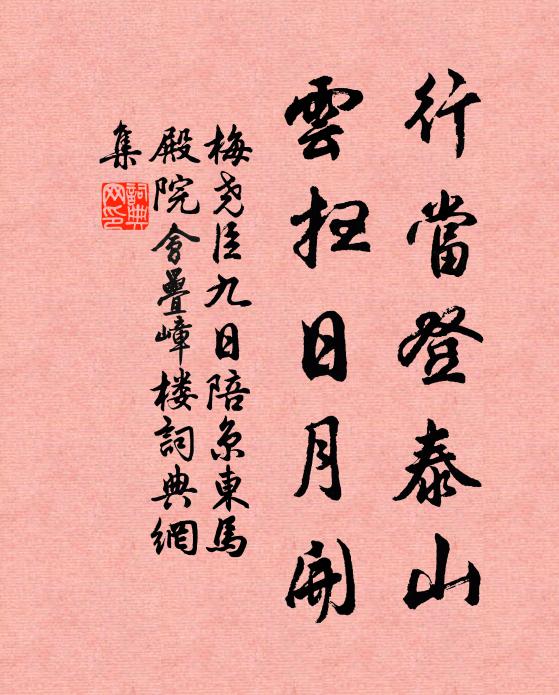 行當登泰山
雲扫日月開
梅尧臣九日陪京東馬
殿院會疊嶂楼詞典網
集
詞典
网印